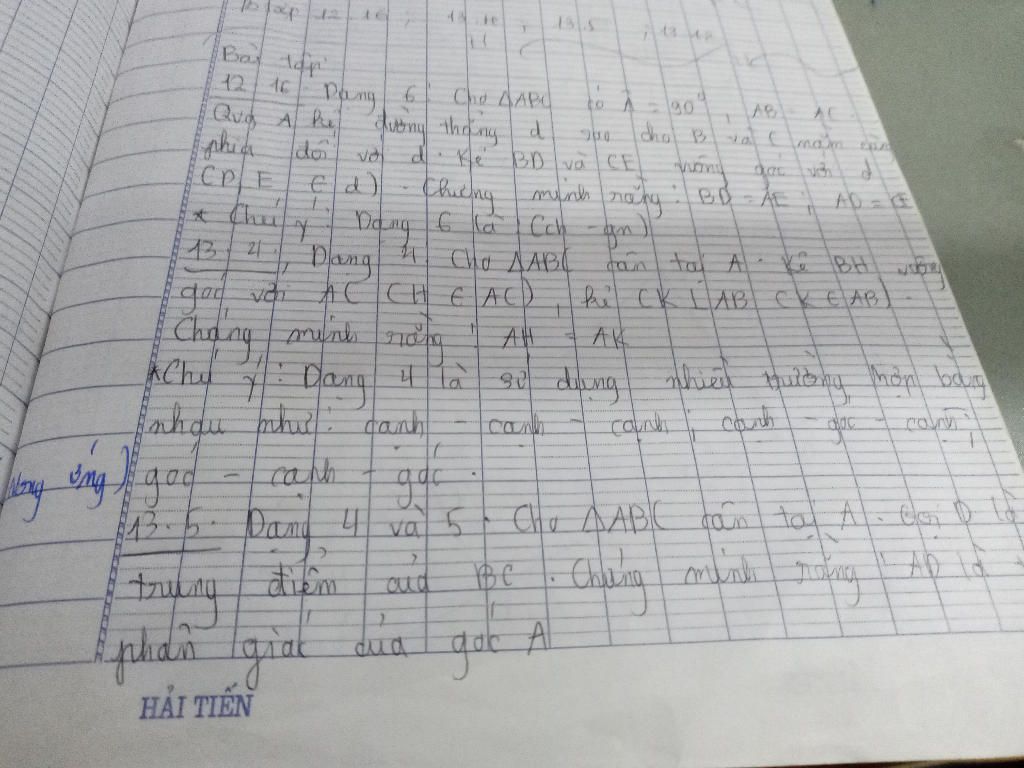 Bài tập 12 16, 13.10, 13.5, 13.12
11
Bài tập:
12 16. Dạng 6: Cho ΔABC có Â = 90°, AB = AC.
Qua A kẻ đường thẳng d sao cho B và C nằm cùng
phía đối với d. Kẻ BD và CE vuông góc với d
(D, E ∈ d). Chứng minh rằng: BD = AE, AD = CE
* Chú ý: Dạng 6 là (ch - gn)
13.4, Dạng 4. Cho ΔABC cân tại A. Kẻ BH vuông
góc với AC (H ∈ AC), kẻ CK ⊥ AB (K ∈ AB).
Chứng minh rằng: AH = AK
* Chú ý: Dạng 4 là sử dụng nhiều trường hợp bằng
nhau như: cạnh - cạnh - cạnh; cạnh - góc - cạnh;
ứng) góc - cạnh - góc.
13.5. Dạng 4 và 5. Cho ΔABC cân tại A. Gọi D là
trung điểm của BC. Chứng minh rằng: AD là
phân giác của góc A
HẢI TIẾN